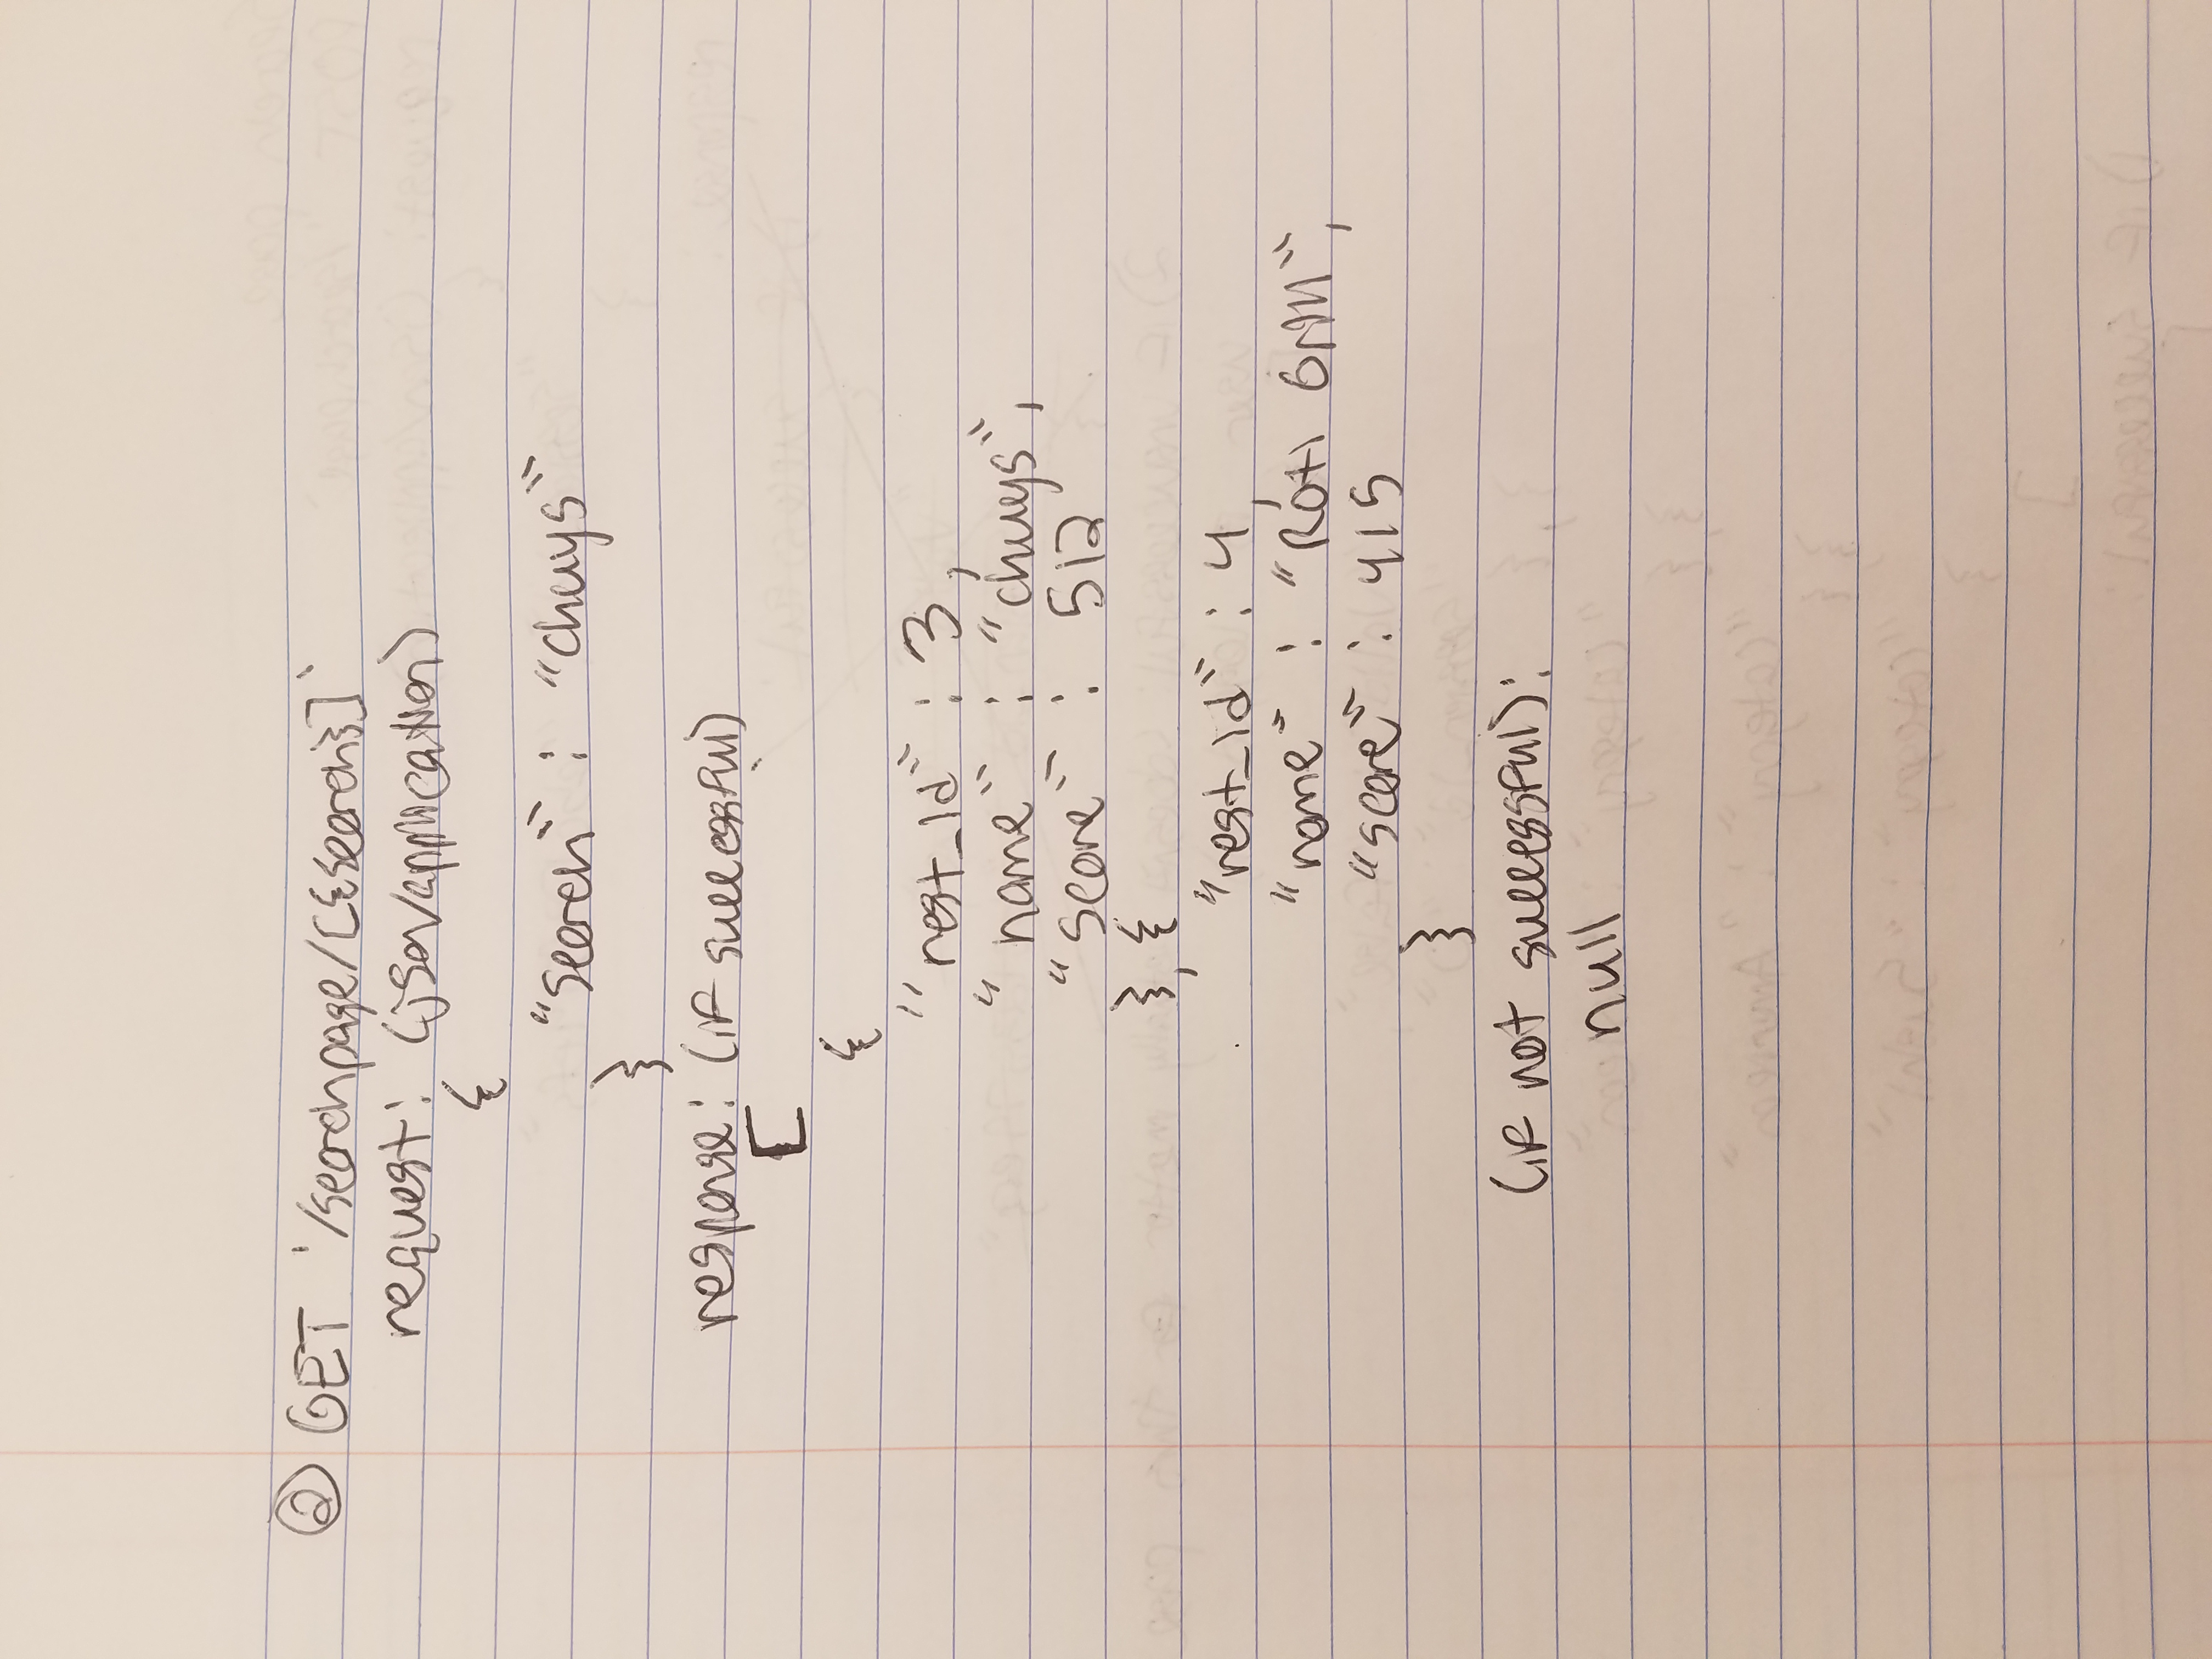 ② GET '/searchpage/[{search}]'
request: (json/application)
{
"search" : "chuys"
}
response: (if successful)
[
{
"rest_id" : 3,
"name" : "chuys",
"score" : 512
}, {
"rest_id" : 4,
"name" : "Roti Grill",
"score" : 415
}
(if not successful):
null